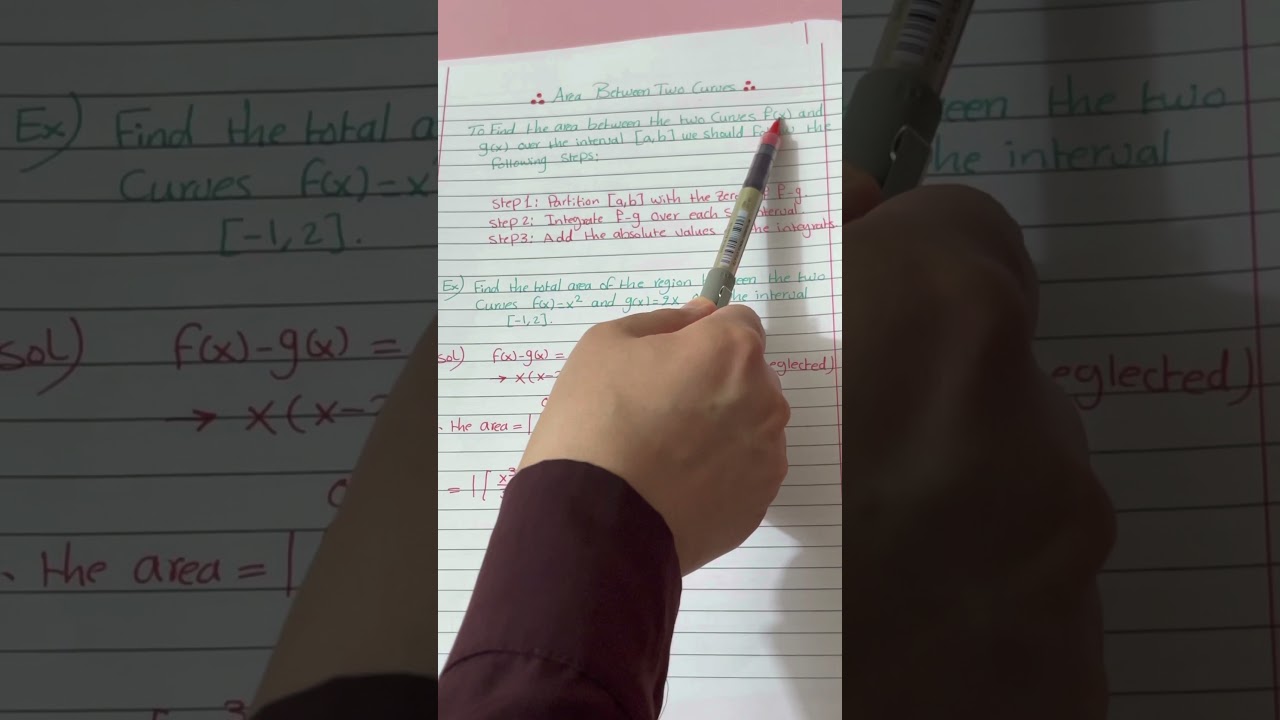 ∴ Area Between Two Curves ∴
To Find the area between the two curves f(x) and
g(x) over the interval [a,b] we should the
following steps:
Step 1: Partition [a,b] with the f-g.
Step 2: Integrate f-g over each
Step 3: Add the absolute values integrals
Ex) Find the total area of the region the two
Curves f(x)=x² and g(x)=2x the interval
[-1,2].
sol) f(x)-g(x) =
→ x(x- eglected)
the area = |
= |[x³
Ex) Find the total a een the two
Curves f(x)=x he interval
[-1,2].
sol) f(x)-g(x) =
→ x(x- eglected)
the area = |